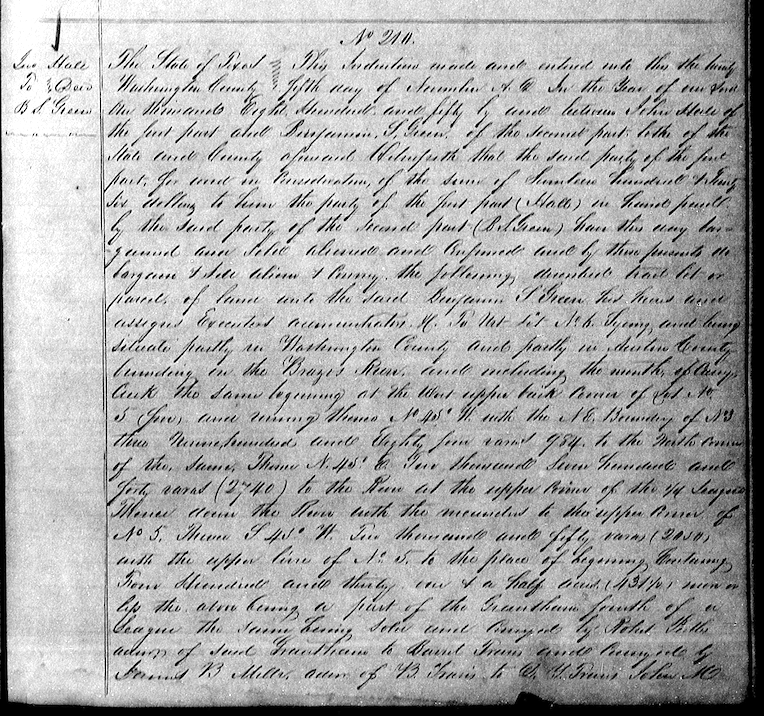 No 210.
Jno Hall
To } Deed
B S. Green
The State of Texas } This Indenture made and entered into this the twenty
Washington County } fifth day of November A. D. In the Year of our Lord
One thousand Eight Hundred and fifty by and between John Hall of
the first part and Benjamin S. Green, of the second part, both of the
State and County aforesaid Witnesseth that the said party of the first
part, for and in Consideration, of the sum of hundred & Twenty
Six dollars to him the party of the first part (Hall) in hand paid
by the said party of the second part (B.S. Green) have this day bar-
gained and sold aliened and Confirmed and by these presents do
bargain & sell alien & Convey the following described tract lot or
parcel, of land unto the said Benjamin S Green his heirs and
assigns Executors administrators, To Wit Lot No. 6. Lying and being
situate partly in Washington County and partly in Austin County
bounding on the Brazos River, and including the mouth of
Creek the same beginning at the West upper back Corner of Lot No.
5 (five) and running thence No 45° W. with the N.E. Boundary of No 3
three Nine hundred and Eighty four varas 984. to the North Corner
of the same, Thence N. 45° E Two thousand Seven hundred and
forty varas (2740) to the River at the upper Corner of the ¼ League
Thence down the River with the meanders to the upper Corner of
No 5. Thence S 45° W. Two thousand and fifty varas (2050)
with the upper line of No 5. to the place of beginning Containing
Four Hundred and thirty one & a half acres (431½) more or
less the above being a part of the Grantham fourth of a
League the same being sold and Conveyed by Robt.
admr of said Grantham to Travis and Conveyed by
James B Miller, adm of B. Travis to Travis John M